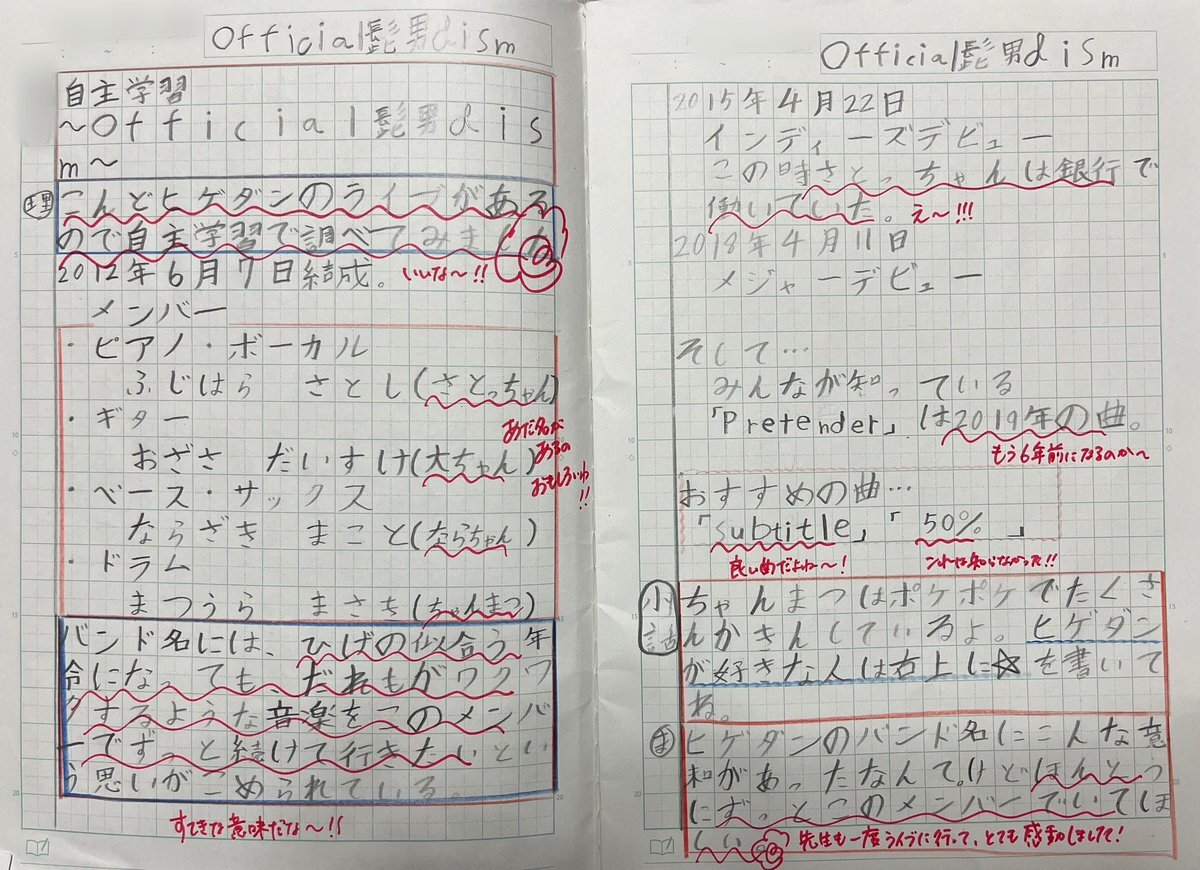 Official髭男dism
自主学習
～Official髭男dis
m～
理
こんどヒゲダンのライブがある
ので自主学習で調べてみました
2012年6月7日結成。
いいな～!!
メンバー
・ピアノ・ボーカル
ふじはら さとし(さとっちゃん)
・ギター
おざさ だいすけ(大ちゃん)
あだ名が
あるの
おもしろいね
!!
・ベース・サックス
ならざき まこと(ならちゃん)
・ドラム
まつうら まさき(ちゃんまつ)
バンド名には、ひげの似合う年
令になっても、だれもがワクワ
クするような音楽をこのメンバ
ーでずっと続けて行きたいとい
う思いがこめられている。
すてきな意味だな～!!
Official髭男dism
2015年4月22日
インディーズデビュー
この時さとっちゃんは銀行で
働いていた。
え～!!!
2018年4月11日
メジャーデビュー
そして…
みんなが知っている
「Pretender」は2019年の曲。
もう6年前になるのか～
おすすめの曲…
「subtitle」「50%」
良い曲だよね～!
これは知らなかった!!
小話
ちゃんまつはポケポケでたくさ
んかきんしているよ。ヒゲダン
が好きな人は右上に☆を書いて
ね。
ま
ヒゲダンのバンド名にこんな意
味があったなんて。けどほんとう
にずっとこのメンバーでいてほ
しい。
先生も一度ライブに行って、とても感動しました!